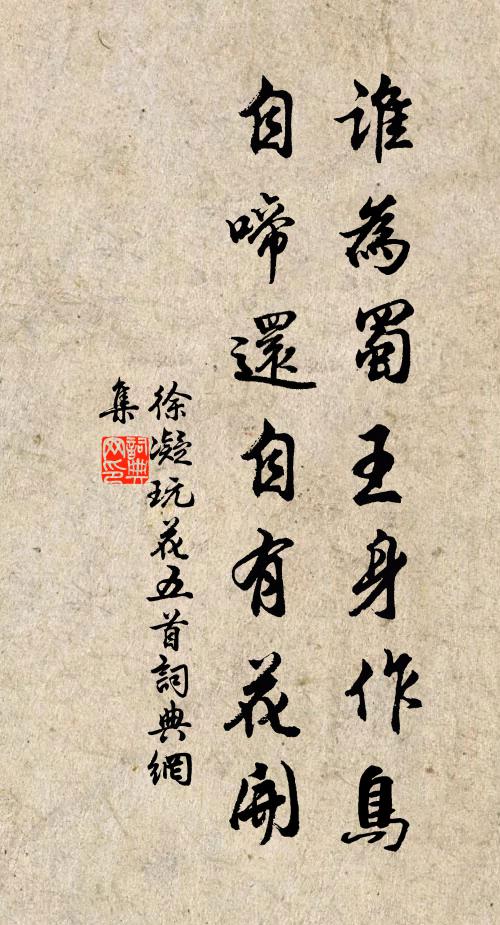 誰為蜀王身作鳥
自啼還自有花開
徐凝玩花五首詞典網
集
詞典
网印